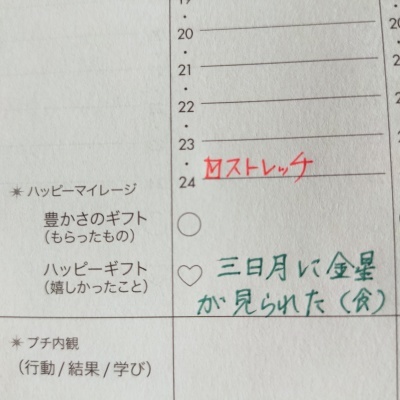 19
20
20
・
21
・
22
・
23
・
☑ストレッチ
24
✴ハッピーマイレージ
豊かさのギフト
(もらったもの)
ハッピーギフト
(嬉しかったこと)
三日月に金星
が見られた(食)
✴プチ内観
(行動/結果/学び)